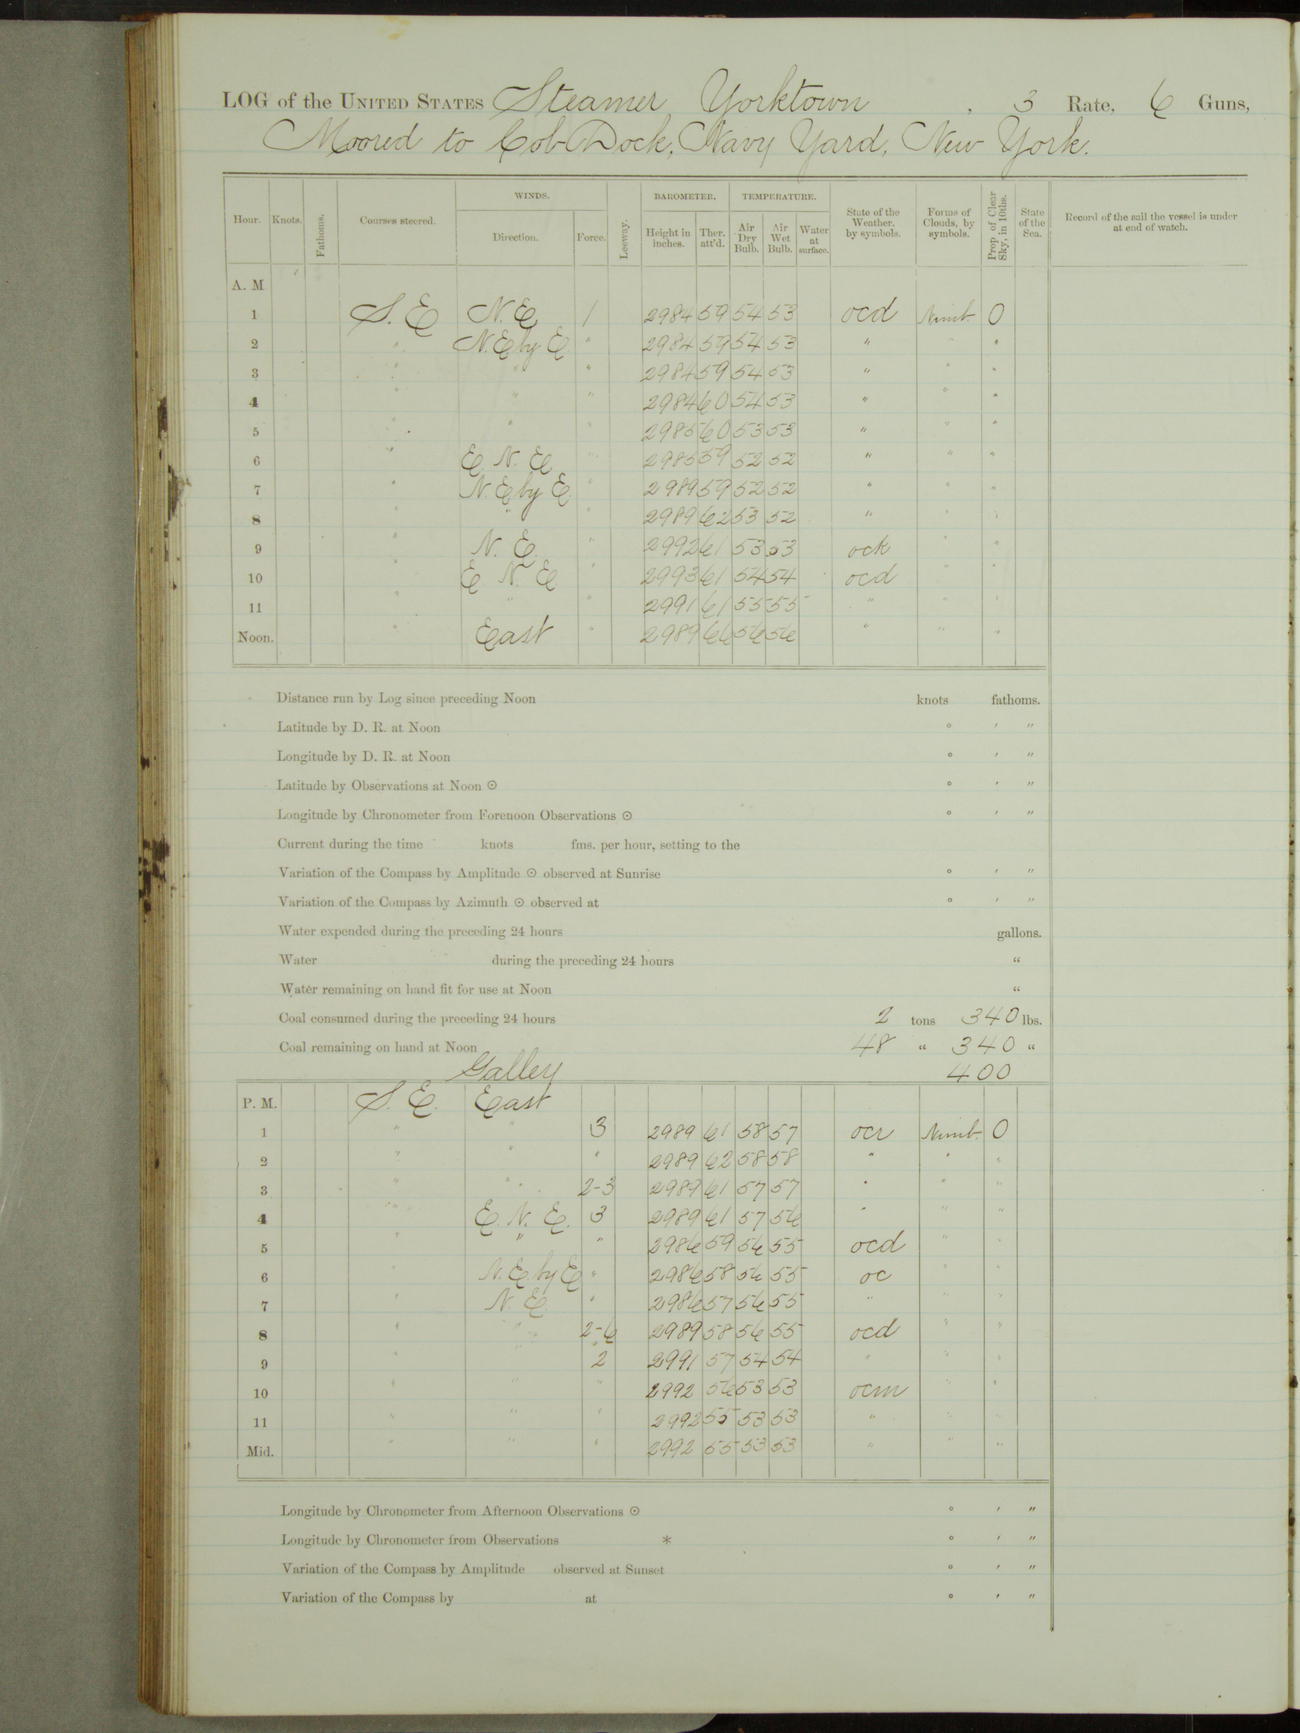 LOG of the UNITED STATES Steamer Yorktown , 3 Rate, 6 Guns,
Moored to Cob Dock, Navy Yard, New York.
Hour. Knots. Fathoms. Courses steered. WINDS. Direction. Force. Leeway. BAROMETER. Height in inches. Ther. att'd. TEMPERATURE. Air Dry Bulb. Air Wet Bulb. Water at surface. State of the Weather. by symbols. Forms of Clouds, by symbols. Prop. of Clear Sky, in 10ths. State of the Sea. Record of the sail the vessel is under at end of watch.
A. M
1 S. E N. E 1 2984 59 54 53 ocd Nimb. 0
2 " N. E by E " 2984 59 54 53 " " "
3 " " " 2984 59 54 53 " " "
4 " " " 2984 60 54 53 " " "
5 " " " 2985 60 53 53 " " "
6 " E. N. E " 2985 59 52 52 " " "
7 " N. E by E " 2989 59 52 52 " " "
8 " " " 2989 62 53 52 " " "
9 " N. E. " 2992 61 53 53 ock " "
10 " E N. E " 2993 61 54 54 ocd " "
11 " " " 2991 61 55 55 " " "
Noon. " East " 2989 66 56 56 " " "
Distance run by Log since preceding Noon knots fathoms.
Latitude by D. R. at Noon ° ' "
Longitude by D. R. at Noon ° ' "
Latitude by Observations at Noon ☉ ° ' "
Longitude by Chronometer from Forenoon Observations ☉ ° ' "
Current during the time knots fms. per hour, setting to the
Variation of the Compass by Amplitude ☉ observed at Sunrise ° ' "
Variation of the Compass by Azimuth ☉ observed at ° ' "
Water expended during the preceding 24 hours gallons.
Water during the preceding 24 hours "
Water remaining on hand fit for use at Noon "
Coal consumed during the preceding 24 hours 2 tons 340 lbs.
Coal remaining on hand at Noon 48 " 340 "
Galley 400
P. M. S. E. East
1 " " 3 2989 61 58 57 ocr Nimb. 0
2 " " " 2989 62 58 58 " " "
3 " " 2-3 2989 61 57 57 " " "
4 " E. N. E. 3 2989 61 57 56 " " "
5 " " " 2986 59 56 55 ocd " "
6 " N. E. by E " 2986 58 56 55 oc " "
7 " N. E. " 2986 57 56 55 " " "
8 " " 2-6 2989 58 56 55 ocd " "
9 " " 2 2991 57 54 54 " " "
10 " " " 2992 56 53 53 ocm " "
11 " " " 2992 55 53 53 " " "
Mid. " " " 2992 55 53 53 " " "
Longitude by Chronometer from Afternoon Observations ☉ ° ' "
Longitude by Chronometer from Observations * ° ' "
Variation of the Compass by Amplitude observed at Sunset ° ' "
Variation of the Compass by at ° ' "